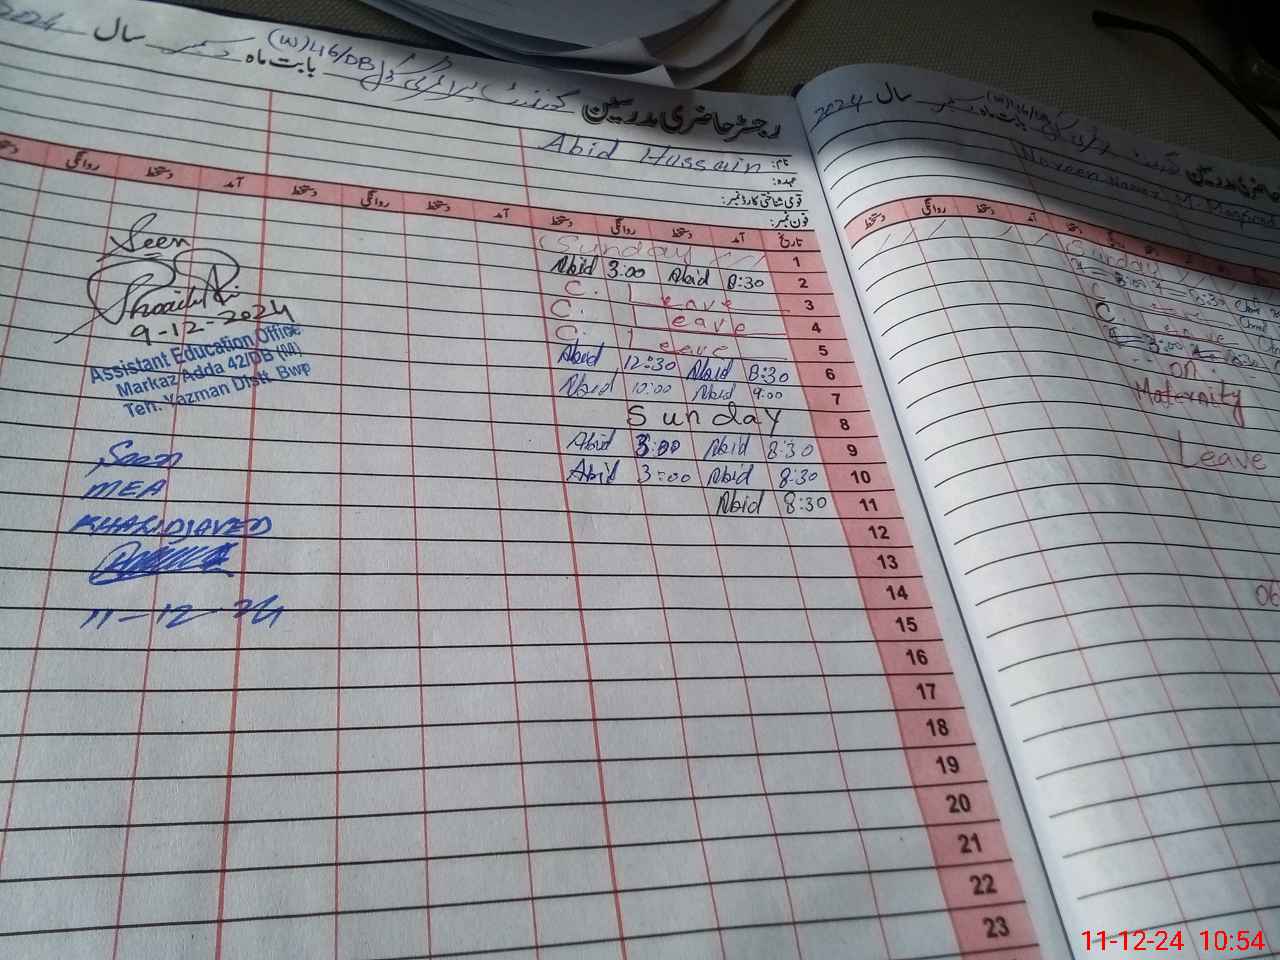 رجسٹر حاضری مدرسین گورنمنٹ پرائمری سکول 46/DB(W) بابت ماہ دسمبر سال 2024
نام: Abid Hussain
عہدہ:
قومی شناختی کارڈ نمبر:
فون نمبر:
تاریخ آمد دستخط روانگی دستخط آمد دستخط روانگی دستخط آمد دستخط روانگی
1 Sunday
2 8:30 Abid 3:00 Abid
3 C. Leave
4 C. Leave
5 C. Leave
6 8:30 Abid 12:30 Abid
7 9:00 Abid 10:00 Abid
8 Sunday
9 8:30 Abid 3:00 Abid
10 8:30 Abid 3:00 Abid
11 8:30 Abid
12
13
14
15
16
17
18
19
20
21
22
23
Seen
9-12-2024
Assistant Education Office
Markaz Adda 42/DB (M)
Teh. Yazman Distt. Bwp
Seen
MEA
KHALID JAVED
11-12-24
سال 2024
دستخط روانگی دستخط آمد
Sunday
on
Maternity
Leave
06
11-12-24 10:54